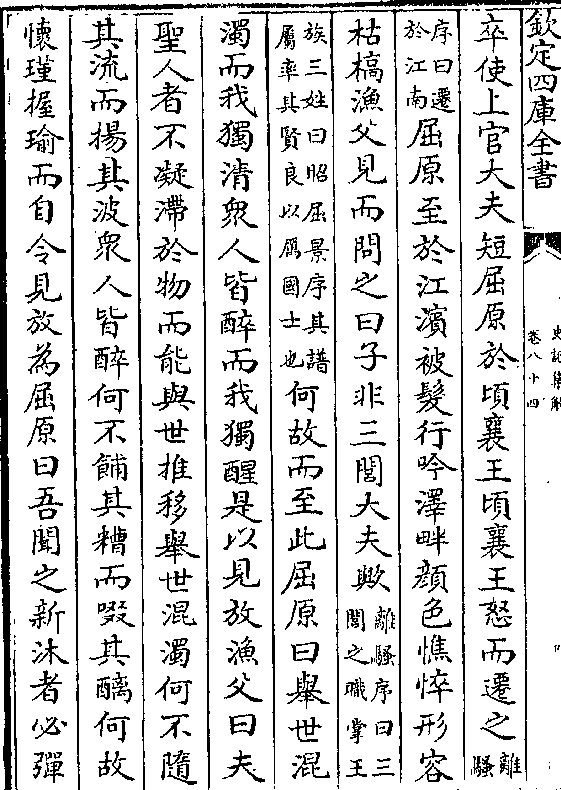 欽定四庫全書
史記集解
卷八十四
卒使上官大夫短屈原於頃襄王頃襄王怒而遷之離騷
序曰遷於江南屈原至於江濱被髮行吟澤畔顔色憔悴形容
枯槁漁父見而問之曰子非三閭大夫歟離騷序曰三閭之職掌王
族三姓曰昭屈景序其譜屬率其賢良以厲國士也何故而至此屈原曰舉世混
濁而我獨清衆人皆醉而我獨醒是以見放漁父曰夫
聖人者不凝滯於物而能與世推移舉世混濁何不隨
其流而揚其波衆人皆醉何不餔其糟而啜其醨何故
懷瑾握瑜而自令見放為屈原曰吾聞之新沐者必彈